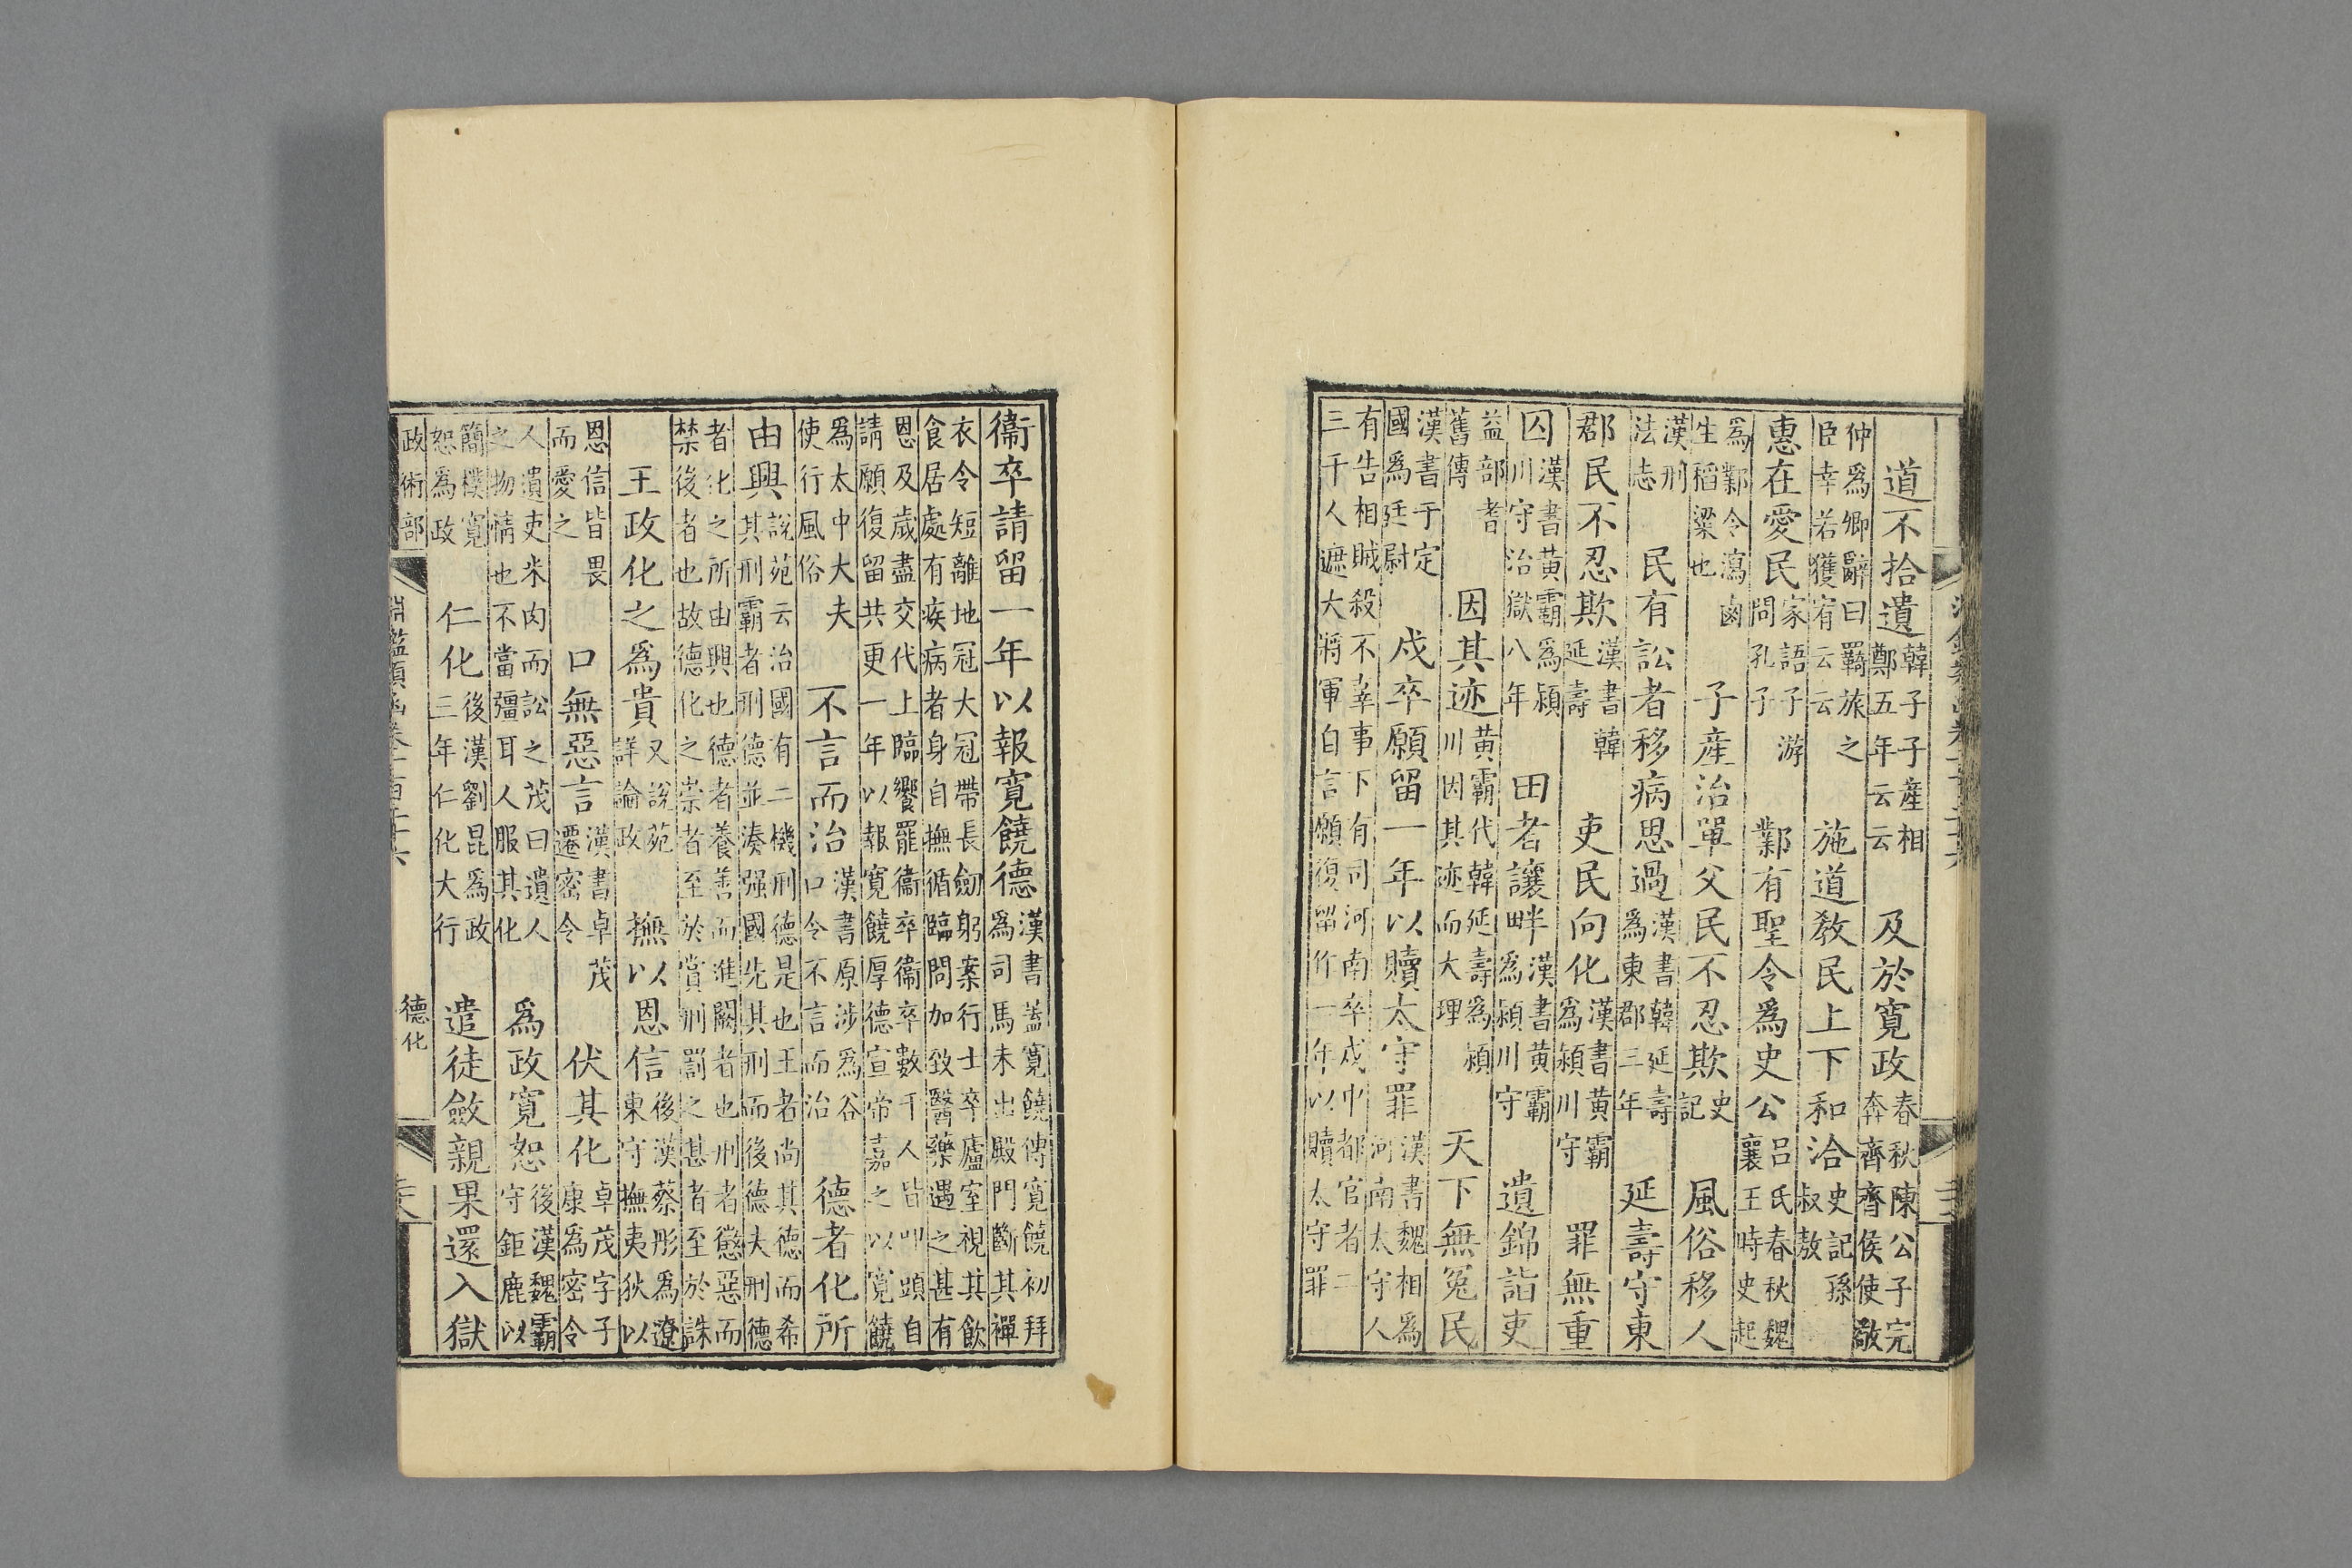 道不拾遺韓子子産相鄭五年云云　及於寛政春秋陳公子完奔齊齊侯使敬
仲爲卿辭曰羇旅之臣幸若獲宥云云　施道敎民上下和洽史記孫叔敖
惠在愛民家語子游問孔子　鄴有聖令爲史公吕氏春秋魏襄王時史起
爲鄴令潟鹵生稻粱也　子産治單父民不忍欺史記　風俗移人
漢刑法志　民有訟者移病思過漢書韓延壽爲東郡三年　延壽守東
郡民不忍欺漢書韓延壽　吏民向化漢書黄霸爲潁川守　罪無重
囚漢書黄霸爲潁川守治獄八年　田者讓畔漢書黄霸爲潁川守　遺錦詣吏
益部耆舊傳　因其迹黄霸代韓延壽爲潁川因其迹而大理　天下無冤民
漢書于定國爲廷尉　戍卒願留一年以贖太守罪漢書魏相爲河南太守人
有告相賊殺不辜事下有司河南卒戍中都官者二三千人遮大將軍自言願復留作一年以贖太守罪
衞卒請留一年以報寛饒德漢書蓋寛饒傳寛饒初拜爲司馬未出殿門斷其襌
衣令短離地冠大冠帶長劒躬案行士卒廬室視其飲食居處有疾病者身自撫循臨問加致醫藥遇之甚有
恩及歲盡交代上臨饗罷衞卒衞卒數千人皆叩頭自請願復留共更一年以報寛饒厚德宣帝嘉之以寛饒
爲太中大夫使行風俗　不言而治漢書原涉爲谷口令不言而治　德者化所
由興說苑云治國有二機刑德是也王者尚其德而希其刑霸者刑德並湊强國先其刑而後德夫刑德
者化之所由興也德者養善而進闕者也刑者懲惡而禁後者也故德化之崇者至於賞刑罰之甚者至於誅
王政化之爲貴又說苑詳論政　撫以恩信後漢蔡彤爲遼東守撫夷狄以
恩信皆畏而愛之　口無惡言漢書卓茂遷密令　伏其化卓茂字子康爲密令
人遺吏米肉而訟之茂曰遺人之物情也不當彊耳人服其化　爲政寛恕後漢魏霸守鉅鹿以
簡樸寬恕爲政　仁化後漢劉昆爲政三年仁化大行　遣徒斂親果還入獄
政術部　淵鑑類函卷一百二十六　德化